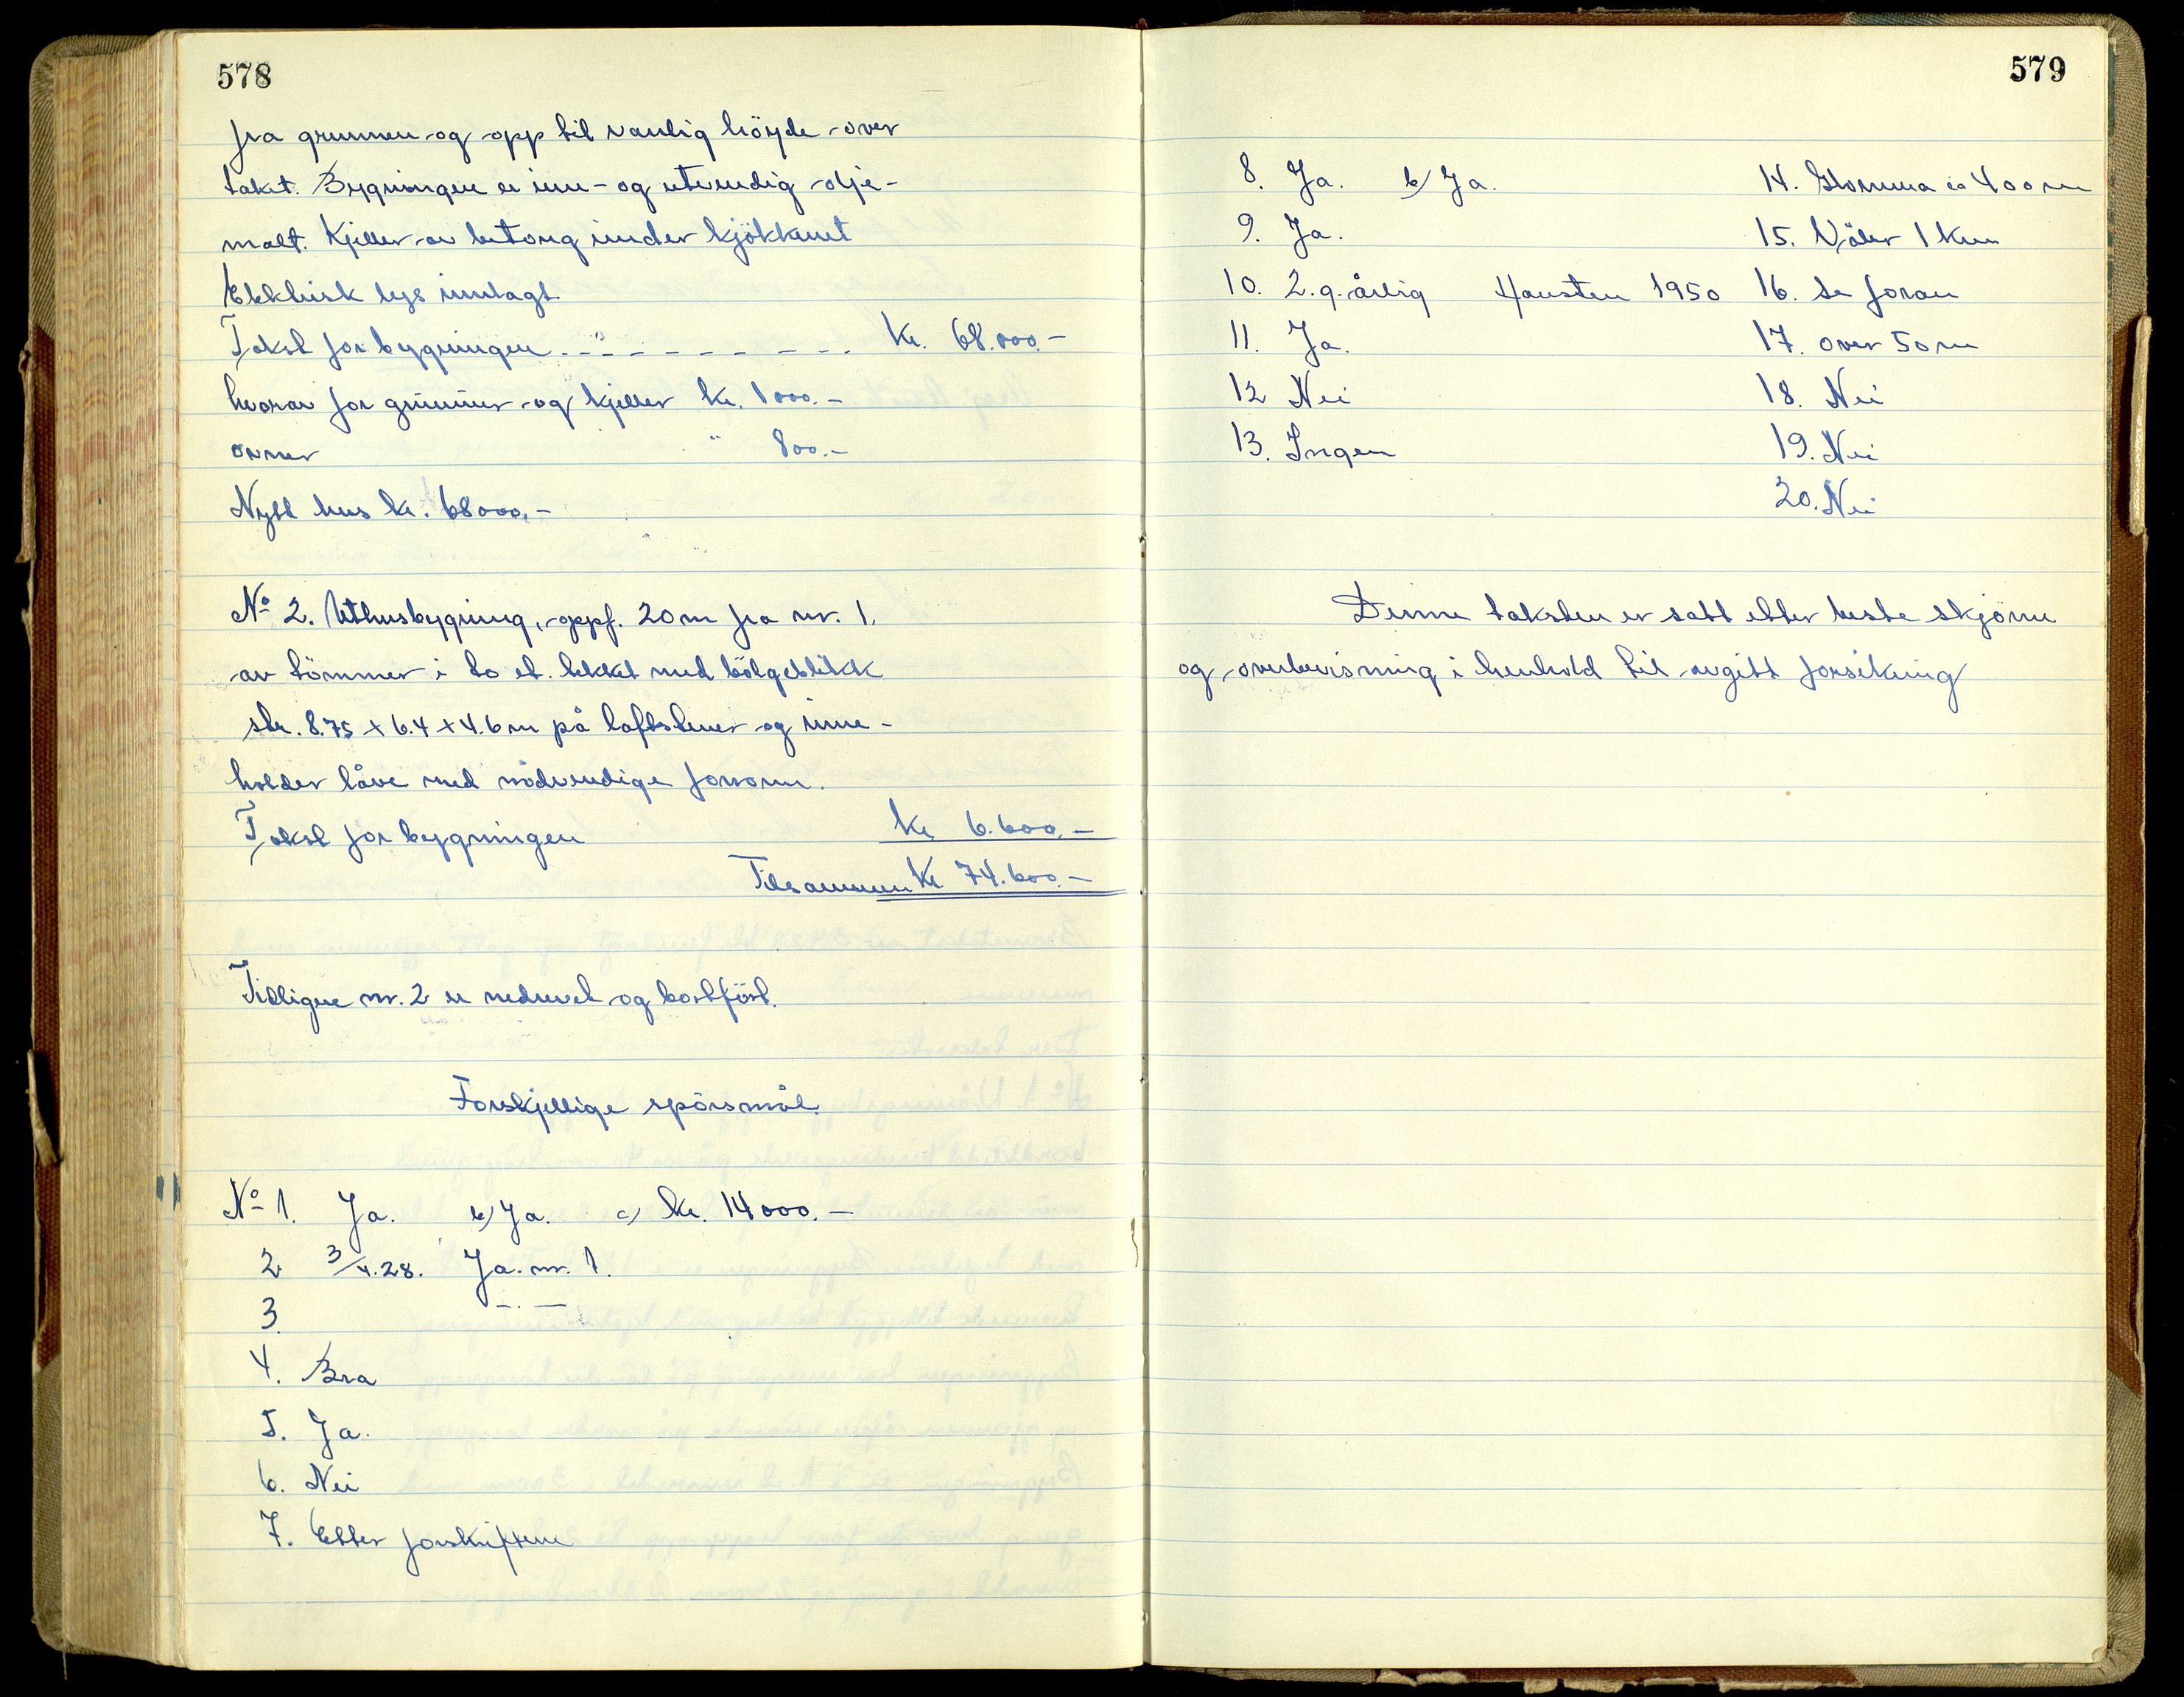 578
fra grunnen og opp til vanlig höyde over
taket. Bygningen er inn- og utvendig olje-
malt. Kjeller av betong under kjökkenet
Elektrisk lys innlagt
Takst for bygningen kr. 68.000.-
hvorav for grunner og kjeller kr. 1000.-
ovner " 800.-
Nytt hus kr. 68000,-
No 2. Uthusbygning, oppf. 20 m fra nr. 1.
av tömmer i to et. tekket med bölgeblikk
str. 8.75 x 6.4 x 4.6 m på loftstuer og inne-
holder låve med nödvendige forrom.
Takst for bygningen kr 6.600,-
Tilsammen kr 74.600.-
Tidligere nr. 2 er nedrevet og bortfört.
Forskjellige spörsmål.
No 1. Ja. b) Ja. c) kr. 14000.-
2 3/4.28. Ja. nr. 1.
3. -.-
4. Bra
5. Ja.
6. Nei
7. Etter forskriftene
579
8. Ja. b) Ja.
9. Ja.
10. 2.g. årlig Hausten 1950
11. Ja.
12 Nei
13. Ingen
14. Glomma ca 400 m
15. Våler 1 km
16. Se foran
17. over 50 m
18. Nei
19. Nei
20. Nei
Denne taksten er satt etter beste skjönn
og overbevisning i henhold til avgitt forsikring